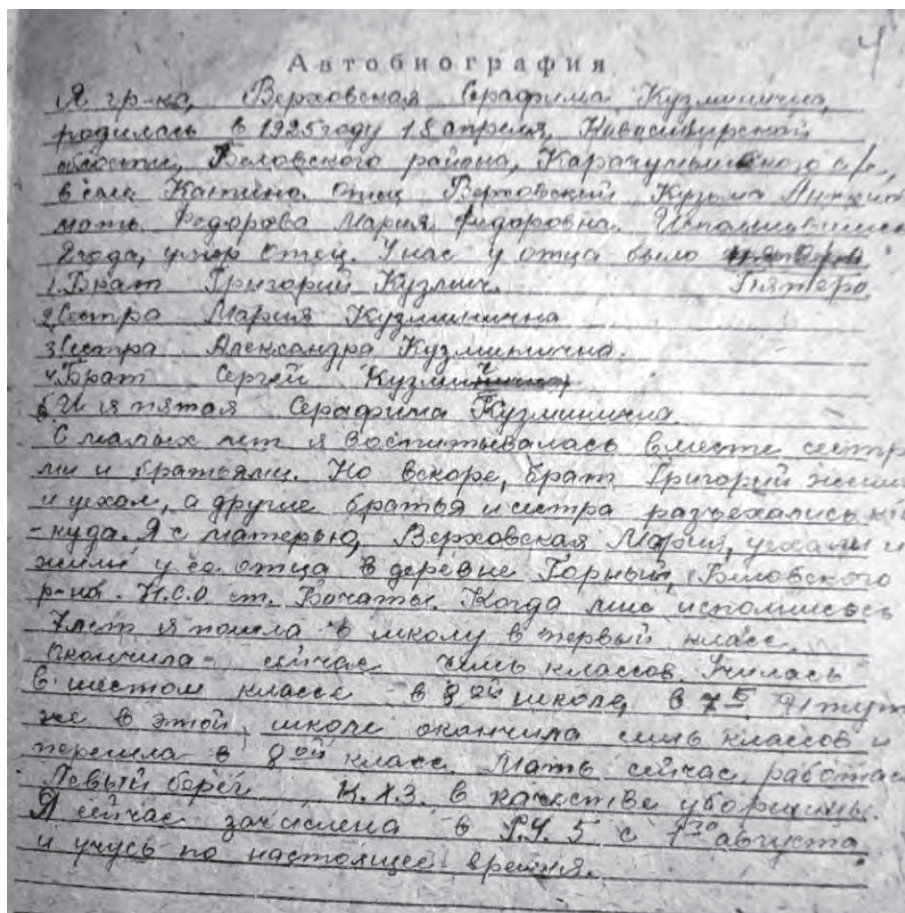 4
Автобиография
Я гр-ка, Верховская Серафима Кузминична,
родилась в 1925 году 18 апреля, Новосибирской
области, Беловского района, с/с,
в селе Каткино. Отец Верховский Кузьма
мать Федорова Мария Фидоровна.
2 года, умер отец. У нас у отца было
1. Брат Григорий Кузмич. Пятеро
2. Сестра Мария Кузминична
3. Сестра Александра Кузминична.
4. Брат Сергей Кузмич
5. И я пятая Серафима Кузминична
С малых лет я воспитывалась вместе сестр
ми и братьями. Но вскоре, брат Григорий
и уехол, а другие братья и сестра разъехались
-куда. Я с матерью, Верховская Мария, уехали и
жили у ёё отца в деревне Горный, Беловского
р-на. Н.С.О. ст. Бочаты. Когда мне исполнилось
7 лет я пошла в школу в первый класс.
Окончила - сейчас семь классов. Училась
в шестом классе в 8ой школе, в 75 Я тут
же в этой школе окончила семь классов и
перешла в 8ой класс. Мать сейчас работае
Левый берег К.Х.З. в качестве уборщицы.
Я сейчас зачислена в Р.У. 5 с 1го августа
и учусь по настоящее время.